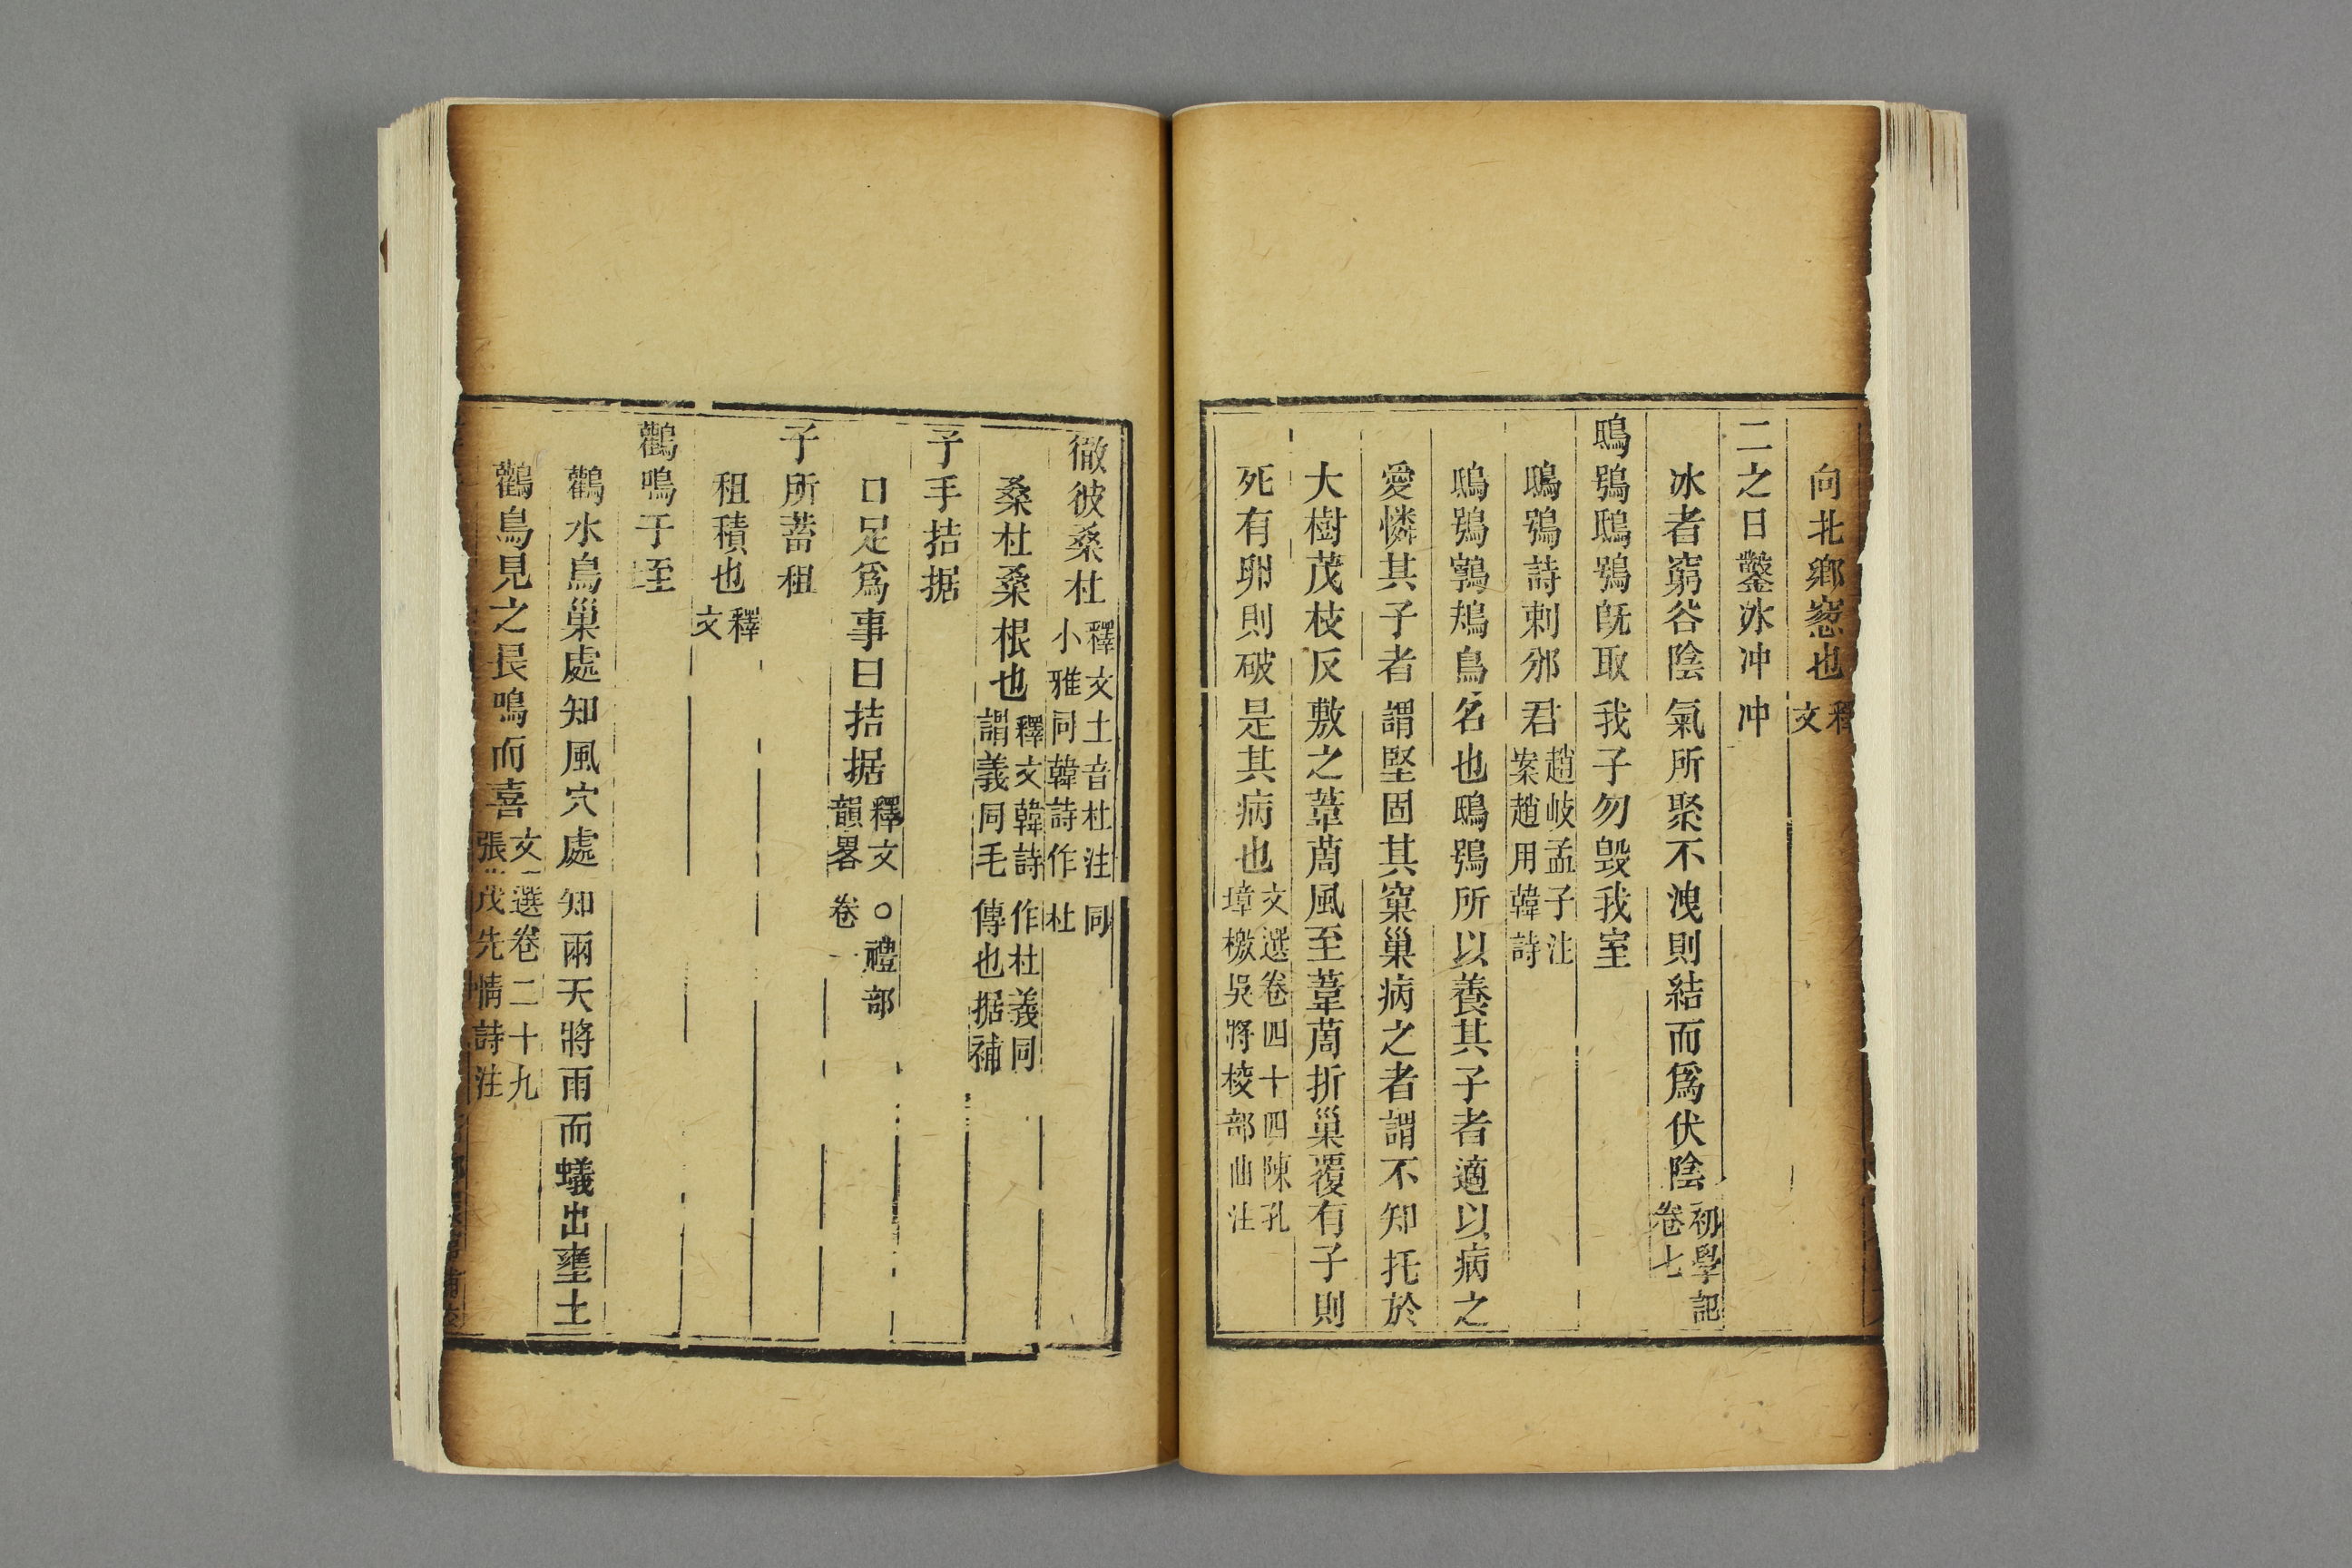 向北鄉窻也釋文
二之日鑿冰冲冲
冰者窮谷陰氣所聚不洩則結而爲伏陰初學記卷七
鴟鴞鴟鴞旣取我子勿毀我室
鴟鴞詩刺邠君趙岐孟子注案趙用韓詩
鴟鴞鸋鴂鳥名也鴟鴞所以養其子者適以病之
愛憐其子者謂堅固其窠巢病之者謂不知托於
大樹茂枝反敷之葦䓊風至葦䓊折巢覆有子則
死有卵則破是其病也文選卷四十四陳孔璋檄吳將校部曲注
徹彼桑杜釋文土音杜注同小雅同韓詩作杜
桑杜桑根也釋文韓詩作杜義同謂義同毛傳也据補
予手拮据
口足爲事曰拮据釋文○禮部韻畧卷
予所蓄租
租積也釋文
鸛鳴于垤
鸛水鳥巢處知風穴處知雨天將雨而蟻出壅土
鸛鳥見之長鳴而喜文選卷二十九張茂先情詩注